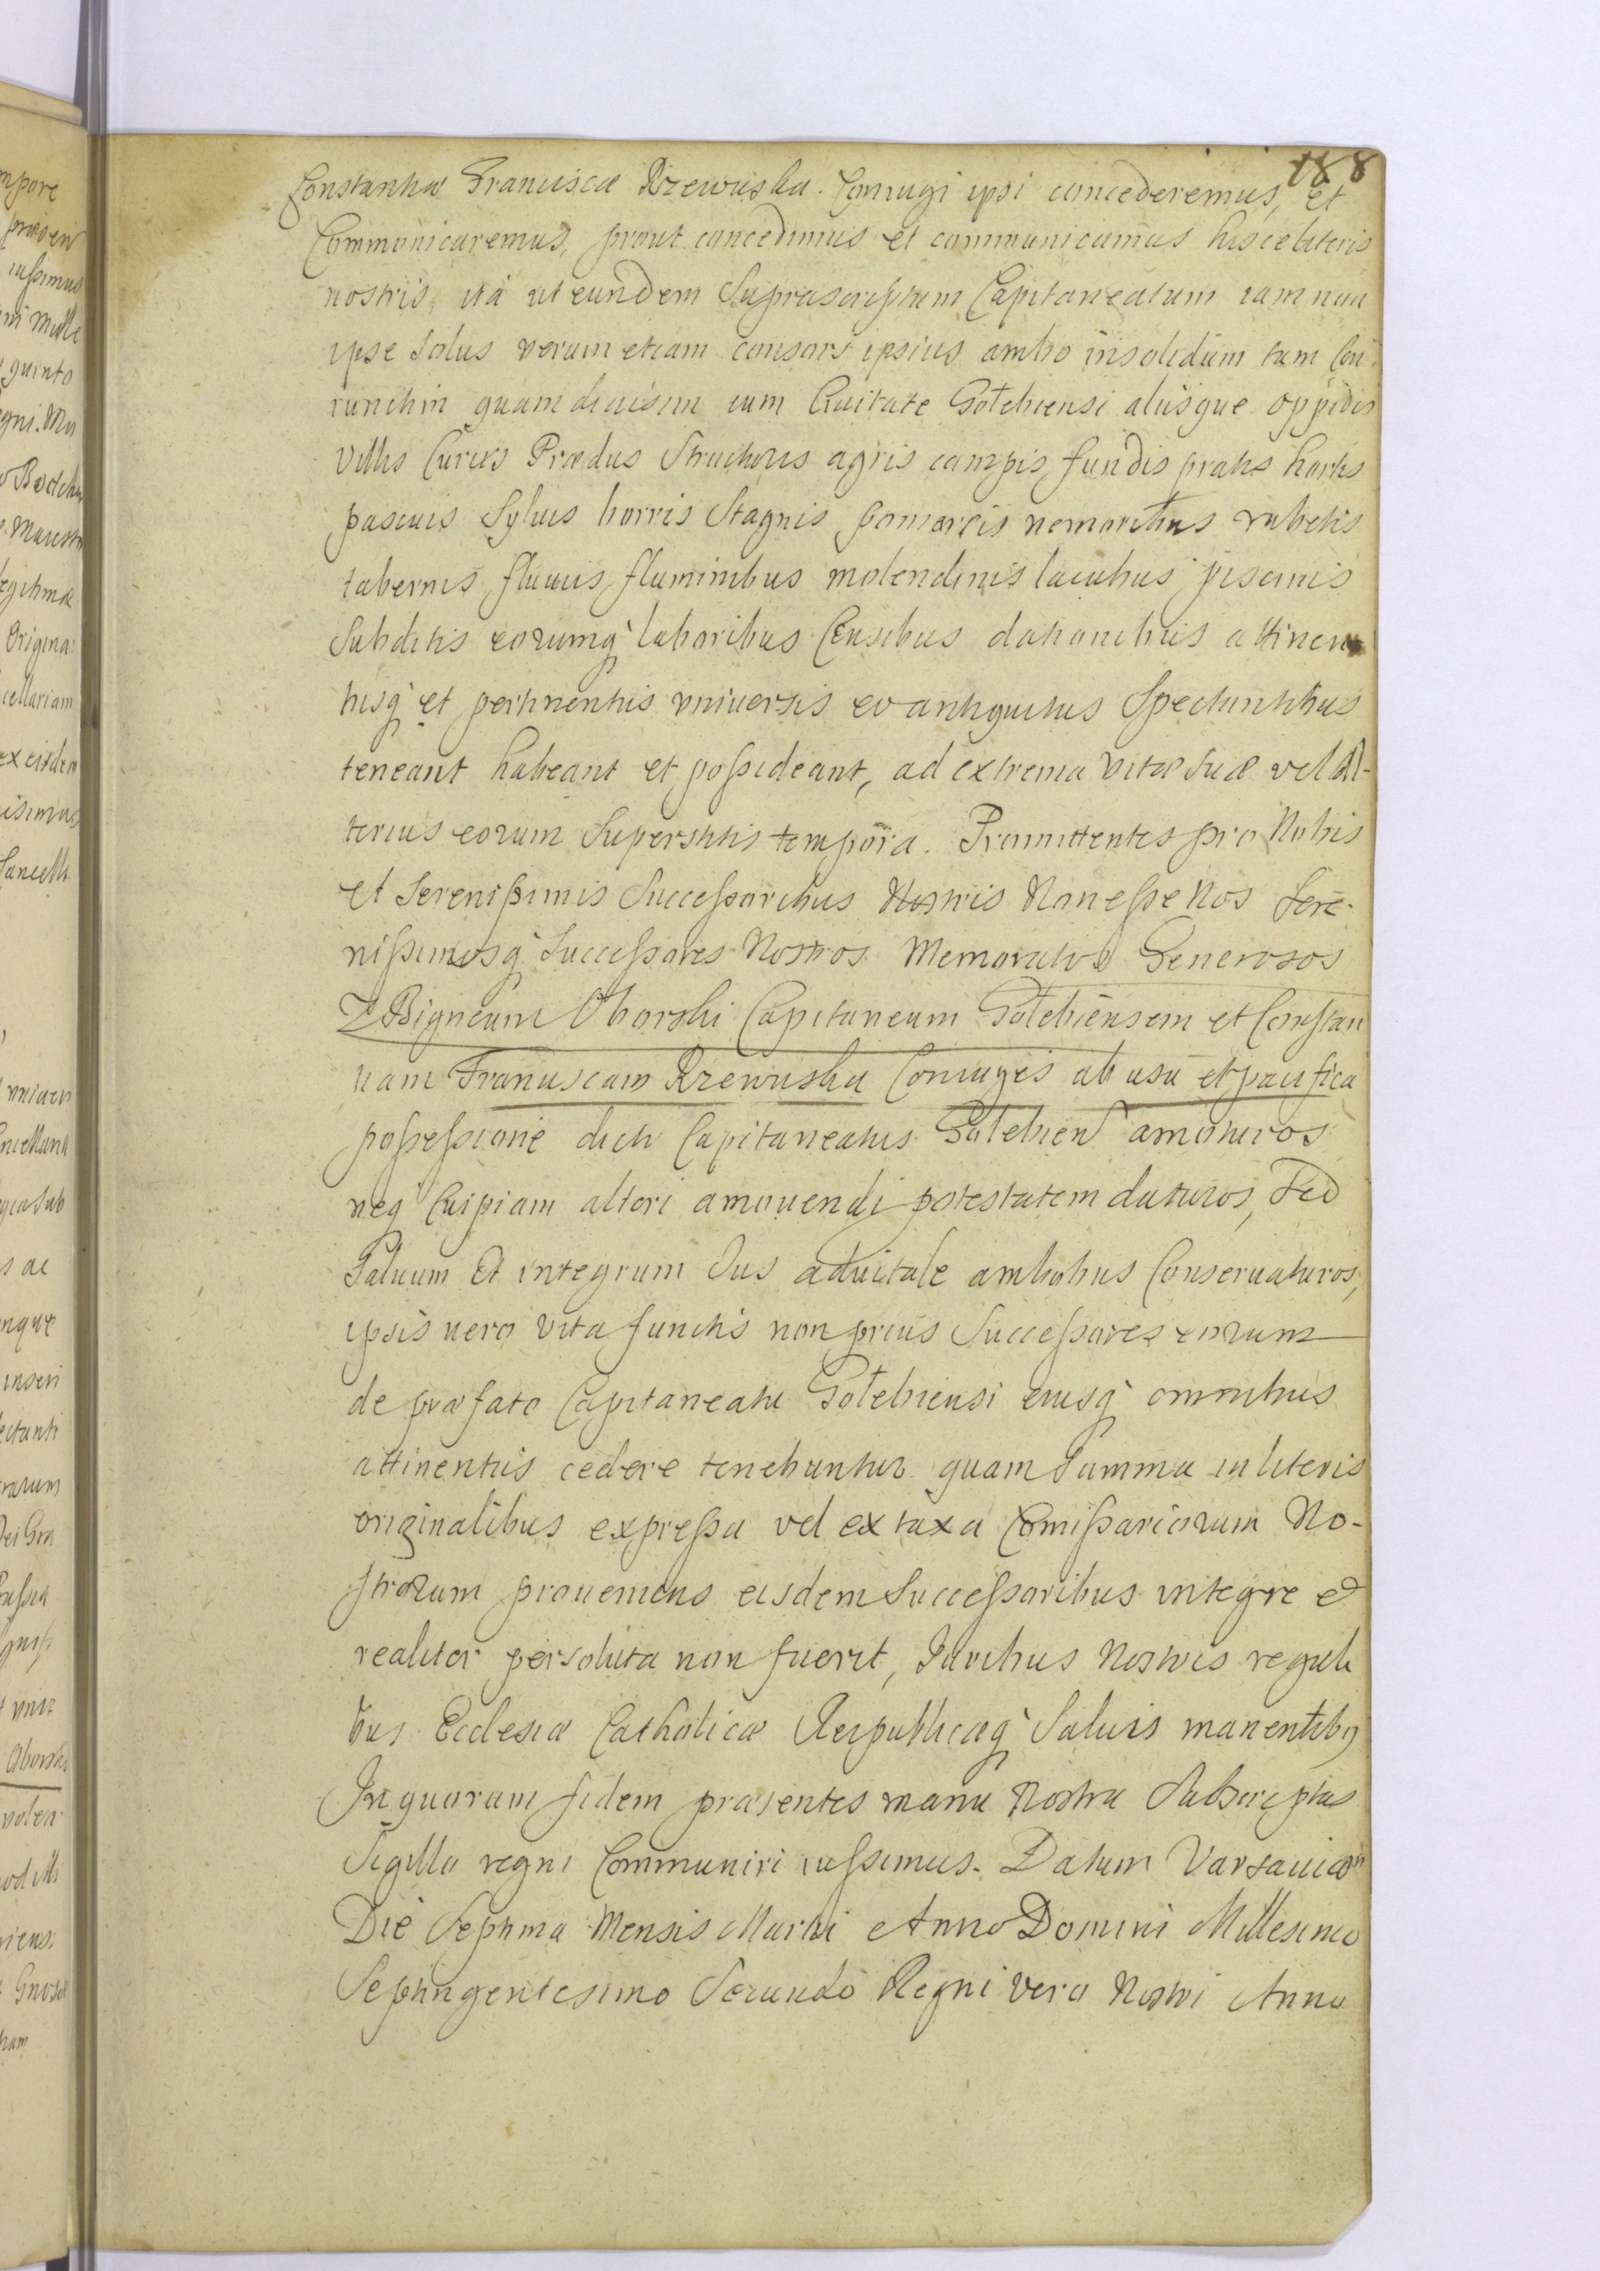 188
Constantiæ Franciscæ Rzewuska. Coniugi ipsi concederemus, et
Communicaremus, prout concedimus et communicamus hisce literis
nostris, ità ut eundem Suprascriptum Capitaneatum iam non
ipse Solus verum etiam consors ipsius ambo insolidum tam Con-
iunctim quam diuisim cum Ciuitate Gołebiensi aliisque oppidis
Villis Curiis Prædiis Structuris agris campis fundis pratis hortis
pascuis Syluis borris Stagnis pomariis nemoribus rubetis
tabernis, fluuiis, fluminibus molendinis lacubus piscinis
Subditis eorumq laboribus Censibus dationibus attinen
tiisq et pertinentiis vniuersis eo antiquitus Spectantibus
teneant habeant et possideant, ad extrema vitæ suæ vel Al-
terius eorum Superstitis tempora. Promittentes pro Nobis
et Serenissimis Successoribus Nostris Non esse Nos Sere-
nissimosq Successores Nostros Memoratos Generosos
ZBigneum Oborski Capitaneum Gołebiensem et Constan
tiam Franciscam Rzewuska Coniuges ab usu et pacifica
possessione dicti Capitaneatus Gołebien amoturos
neq Cuipiam alteri amouendi potestatem daturos, Sed
Saluum et integrum Ius aduitale ambobus Conseruaturos,
ipsis vero vita functis non prius Successores eorum
de præfato Capitaneatu Gołebiensi eiusq omnibus
attinentiis cedere tenebuntur quam Summa in literis
originalibus expressa vel ex taxa Comissariorum No-
strorum proueniens eisdem Successoribus integre et
realiter persoluta non fuerit, Iuribus Nostris regali
bus Ecclesiæ Catholicæ Reipublicæq Saluis manentibq
In quorum fidem præsentes manu Nostra Subscriptas
Sigillo regni Communiri iussimus. Datum Varsauiæ
Die Septima Mensis Martii Anno Domini Millesimo
Septingentesimo Secundo Regni vero Nostri Anno